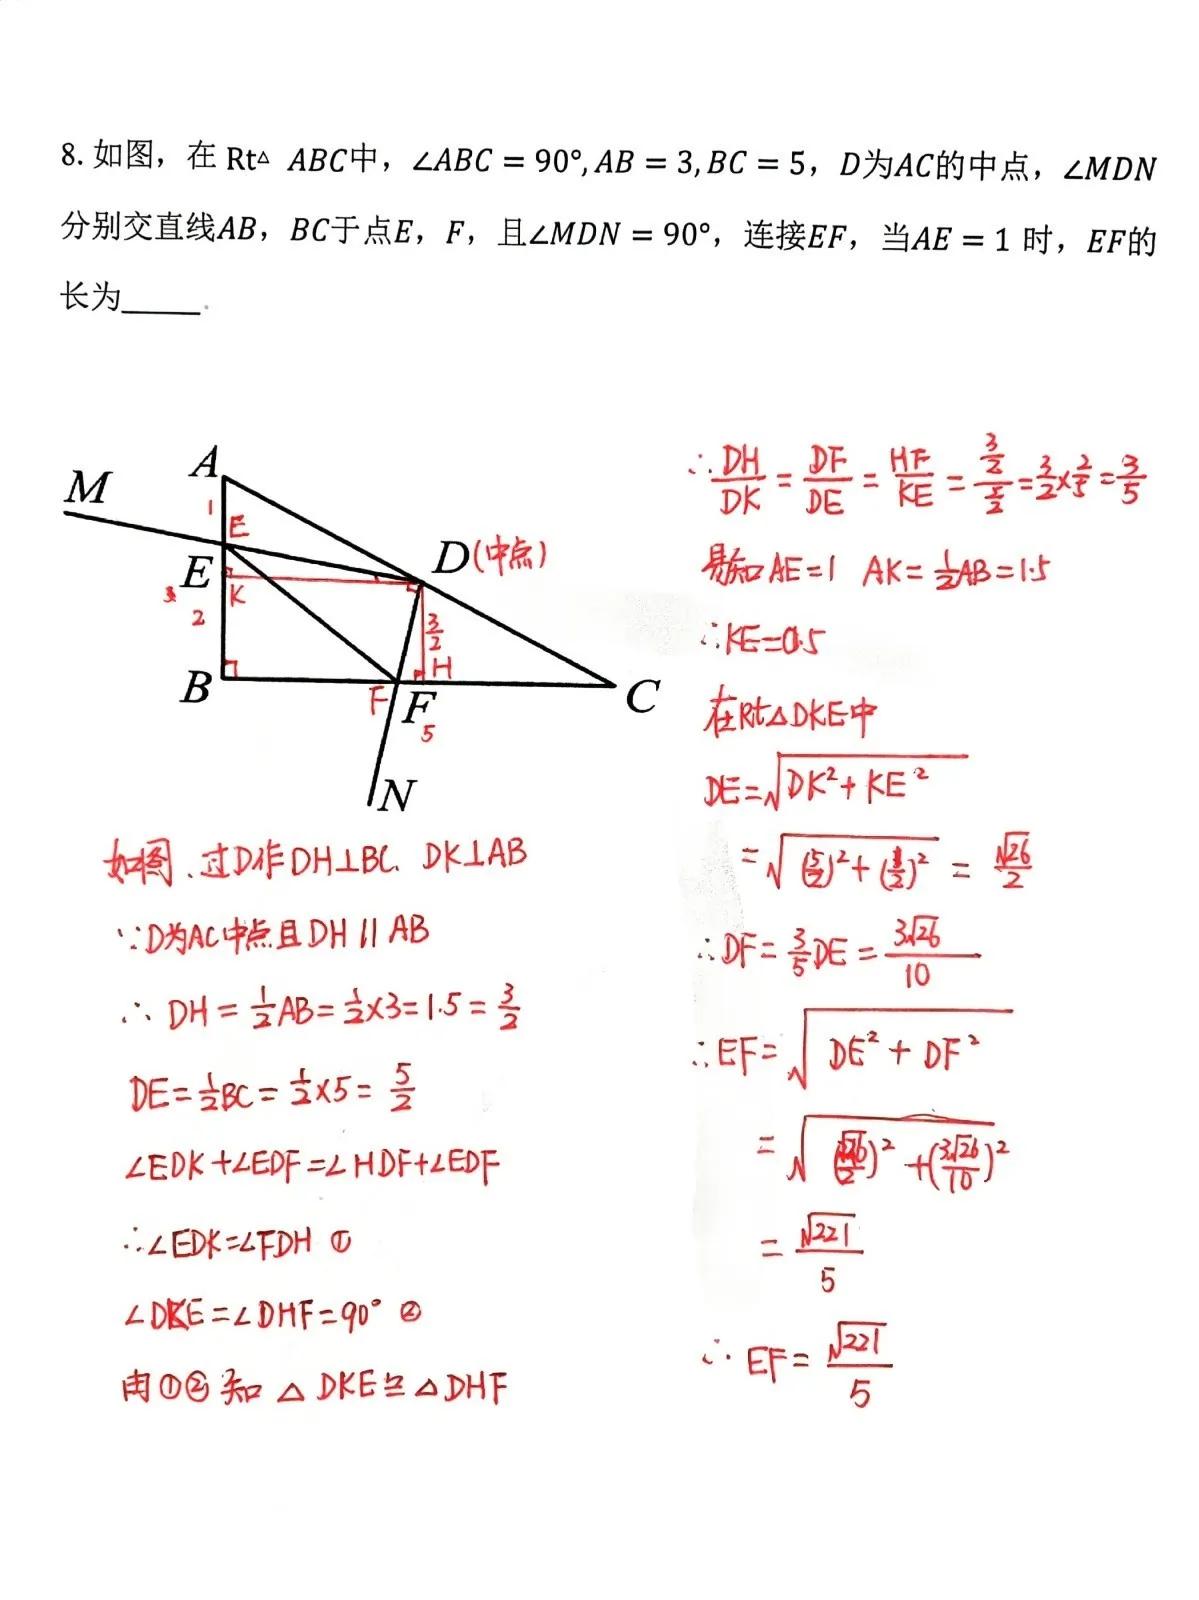 8. 如图，在 Rt△ ABC中，∠ABC = 90°, AB = 3, BC = 5，D为AC的中点，∠MDN
分别交直线AB，BC于点E，F，且∠MDN = 90°，连接EF，当AE = 1 时，EF的
长为_____.
M
A
1
E
E
D(中点)
K
3
2
3/2
H
B
F
F
5
C
N
如图、过D作DH⊥BC、DK⊥AB
∵D为AC中点且DH∥AB
∴ DH = 1/2 AB = 1/2 ×3 = 1.5 = 3/2
DE = 1/2 BC = 1/2 ×5 = 5/2
∠EDK+∠EDF=∠HDF+∠EDF
∴∠EDK=∠FDH ①
∠DKE=∠DHF=90° ②
由①②知 △DKE≌△DHF
∴ DH/DK = DF/DE = HF/KE = (3/2)/(5/2) = 3/2 × 2/5 = 3/5
易知AE=1 AK=1/2 AB=1.5
∴KE=0.5
在Rt△DKE中
DE=√(DK²+KE²)
=√((5/2)²+(1/2)²) = √26/2
∴DF=3/5 DE=3√26/10
∴EF=√(DE²+DF²)
=√((√26/2)²+(3√26/10)²)
=√221/5
∴EF=√221/5